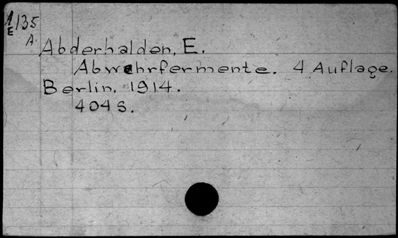 1/E 135
A.
Abderhalden, E.
Abwehrfermente. 4 Auflage.
Berlin, 1914.
404 S.